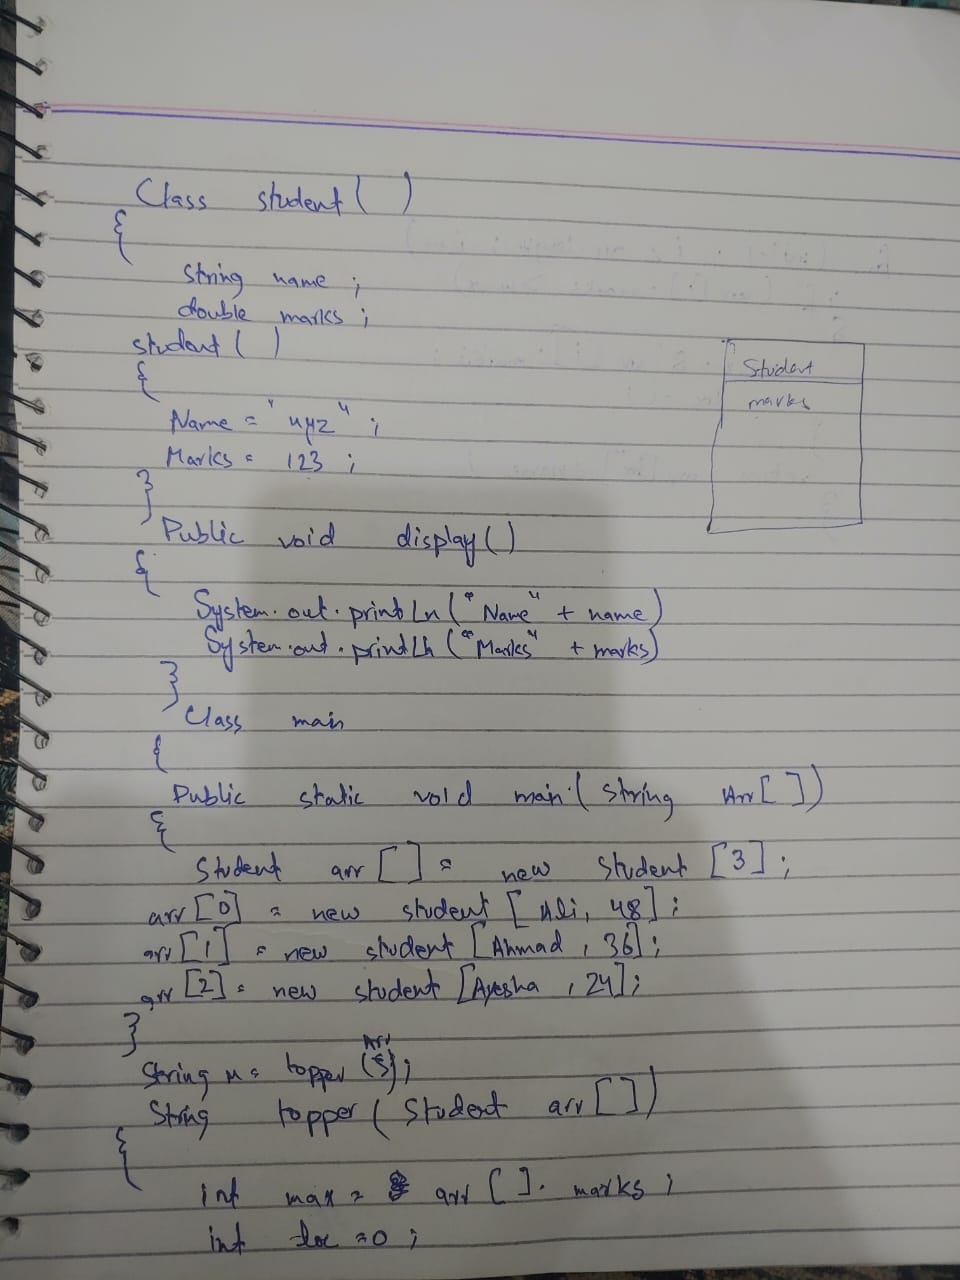 Class student( )
{
String name ;
double marks ;
student ( )
{
Name = "xyz" ;
Marks = 123 ;
}
Public void display()
{
System.out.println("Name" + name)
System.out.println("Marks" + marks)
}
Class main
{
Public static void main(string Arr[ ])
{
Student arr [ ] = new student [3] ;
arr [0] = new student [Ali, 48] ;
arr [1] = new student [Ahmad , 36] ;
arr [2] = new student [Ayesha , 24] ;
}
Arr
String x = topper ( ) ;
String topper ( Student arr [ ] )
{
int max = arr [ ] . marks ;
int loc = 0 ;
Student
marks